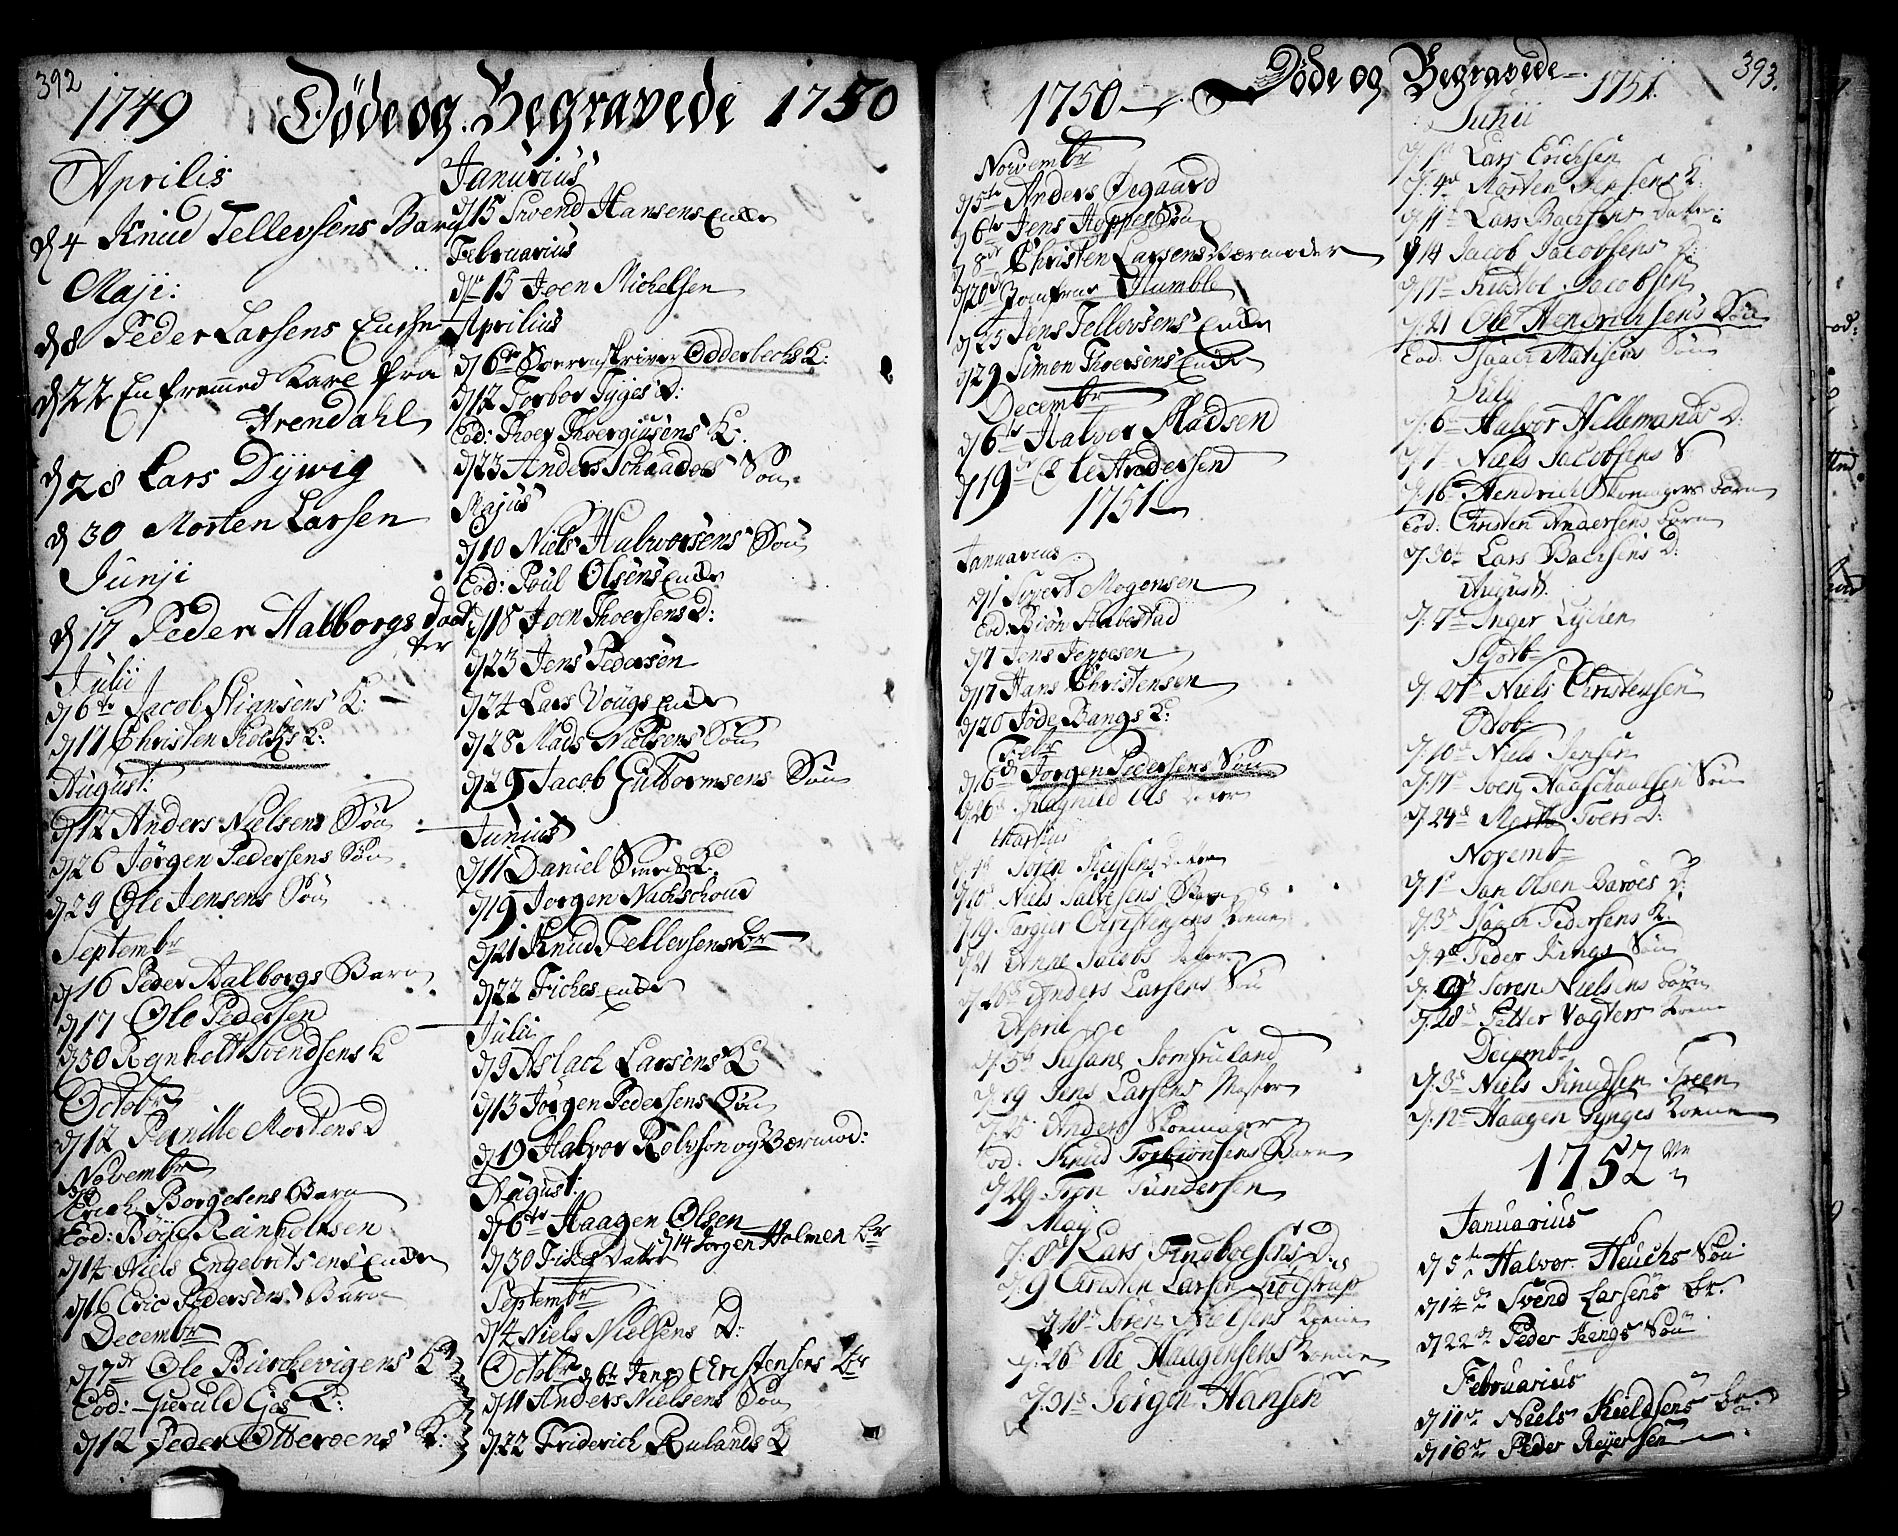 392
1749 Døde og Begravede 1750
Aprilis
d 4 Knud Tellevsens Barn
Maji:
d 8 Peder Larsens Encke
d 22 En fremmed Karl fra
Arendahl
d 28 Lars Dÿwig
d 30 Morten Larsen
Junji
d 17 Peder Aalborgs daat
ter
Julii
d 6te Jacob Stiansens K:
d 17 Christen Kochs K:
August:
d 12 Anders Nielsens Søn
d 26 Jørgen Pedersens Søn
d 29 Ole Jensens Søn
Septembr
d 16 Peder Aalborgs Barn
d 17 Ole Pedersen
d 30 Reinholt Svendsens K
Octobr
d 12 Pernille Mortens D
Novembr
Erich Borgesens Barn
Eod: Børje Reinholtsen
d 14 Niels Engebretsens Encke
d 16 Eric Pedersens Barn
Decembr
d 7de Ole Bierchevigens K
Eod: Gieruld Gios K:
d 12 Peder Otteroens K:
Janurius
d 15 Svend Hansens Encke
Februarius
d 15 Joen Michelsen
Aprilius
d 6te Soerenskriver Odderbechs K:
d 12 Torbor Tyges D:
Eod: Thoer Thoergiusens K:
d 23 Anders Schaadoes Søn
Majus
d 10 Niels Halvorsens Søn
Eod: Poul Olsens Encke
d 18 Joen Thoersens D:
d 23 Jens Pedersen
d 24 Lars Vougs Encke
d 28 Mads Nielsens Søn
d 29 Jacob Guttormsens Søn
Junius
d 11 Daniel Smeds K:
d 19 Jørgen Nachschoud
d 21 Knud Tellevsens Br
d 22 Fiches Encke
Julii
d 9 Aslach Larsens K
d 13 Jørgen Pedersens Søn
d 19 Halvor Robsson og Værmod:
August:
d 6te Haagen Olsen
d 14 Jørgen Holmen Br
d 30 Fiches Datter
Septembr
d 4 Niels Nielsens D:
Octobr d 6te Jens Christensens Br
d 11 Anders Nielsens Søn
d 22 Friderich Rulands K
393.
1750 Døde og Begravede 1751.
Novembr
d 5te Anders Øegaard
d 6te Jens Hoppes Søn
d 8de Christen Larsens Værmoder
d 20d Jomfrue Humble
d 25 Jens Tellevsens Encke
d 29 Simen Thoersens Encke
Decembr
d 6te Halvor Madsen
d 19 Ole Andersen
1751
Januarius
d 1 Sivert Mogensen
Eod: Biøn Aabestad
d 7 Jens Jeppesen
d 17 Hans Christensen
d 20 Jøde Bangs K:
Febr
d 6d Jørgen Pedersens Søn
d 26 Magnild Ols Datter
Martius
Søren Datter
d 10 Niels Barn
d 19 Torgier Christensens Konne
d 21 Anne Jacobs Datter
d 26 Anders Larsens Søn
April
d 5 Susane
d 19 Jens Larsens Moster
Anders Skoemager
Eod: Knud Torbiønsens Barn
d 29 Tron Tundersen
Maij
d 8 Lars Findboesens D:
d 9 Christen Larsen
d 18 Søren Nielsens Konne
d 26 Ole Haagensens Konne
d 31 Jørgen Hansen
Junii
d 1 Lars Erichsen
d 4 Morten Jensens K:
d 11 Lars Bachsens Datter
d 14 Jacob Jacobsens D:
d 17 Jacobsen
d 21 Ole Hendrichsens Søn
Eod: Isaach Matisens Søn
Juli
d 6 Halvor Hellemands D:
d 7 Niels Jacobsens S
d 16 Hendrich Skomagers Barn
Eod: Christen Andersens Barn
d 30 Lars Bachsens D:
August.
d 7 Inger Lÿchen
Septb
d 21 Niels Christensen
Octob
d 10 Niels Jensen
d 17 Joen Haagens Søn
d 24 Toers D:
Novemb
d 1 Jan Olsen Baroes D:
d 3 Isach Pedersens K.
d 4 Peder Kings Søn
d 9 Søren Nielsens Børn
d 28 Petter Vogters Konne
Decemb
d 3 Niels Knudsen Green
d 12 Haagen Tynges Konne
1752
Januarius
d 5te Halvor Heuchs Søn
d 14de Svend Larsens Br.
d 22de Peder Kings Søn
Februarius
d 11te Niels Kieldsens Br.
d 16de Peder Reÿersen